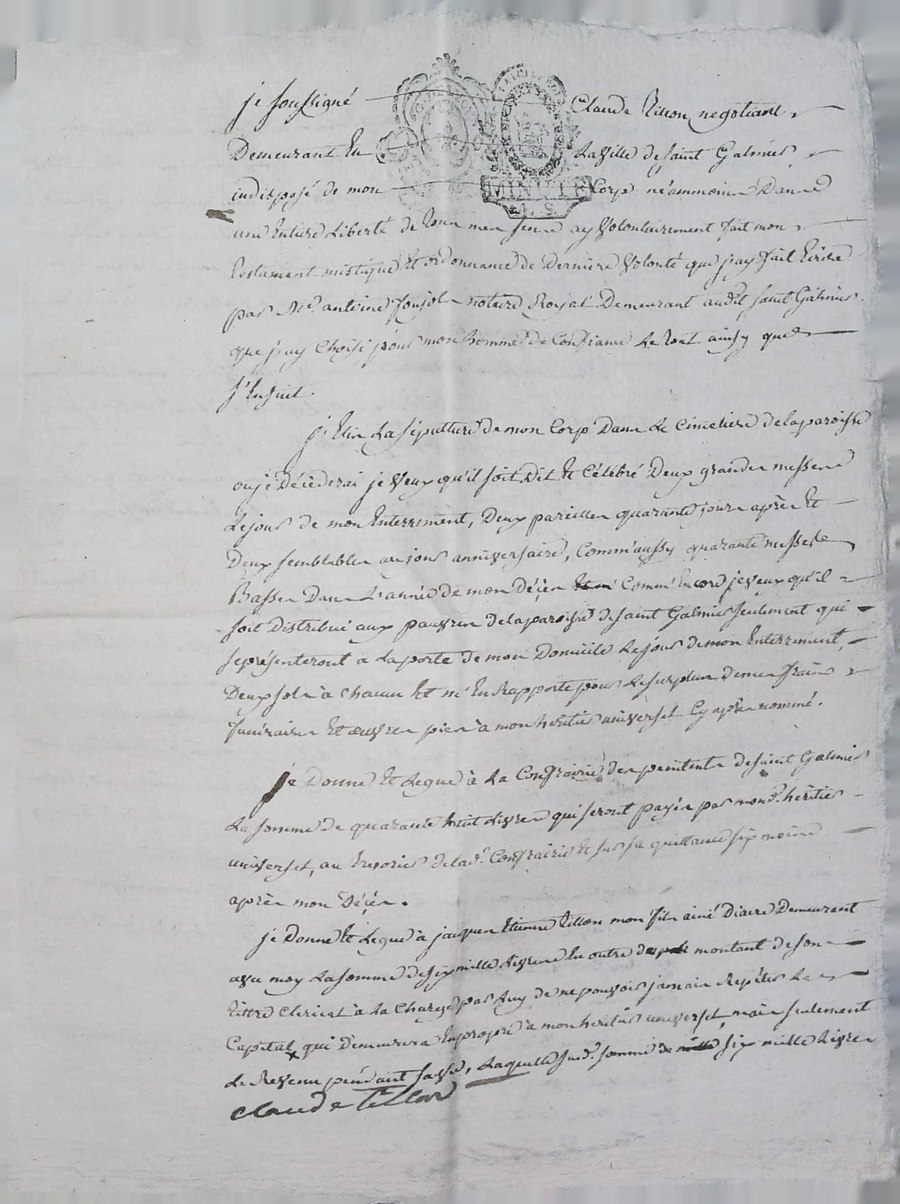 je soussigné Claude Tillon negotiant
Demeurant En La ville de saint Galmier
indisposé de mon Corp néammoins Dans
une Entiere Liberté de tous mes sens ay volontairement fait mon
testament mistique Et ordonnance de Derniere volonté que j'ay fait Ecrire
par Me. antoine notaire Royal Demeurant audit saint Galmier
que j'ay Choisi pour mon homme de Confiance Le tout ainsy que
s'Ensuit.
j'Elis La sépulture de mon Corp Dans Le Cimetiere de la paroisse
ou je Décéderai je veux qu'il soit Dit Et Célébré Deux grandes messes
Le jour de mon Enterrement, Deux pareilles quarante jours après Et
Deux semblables au jour anniversaire, Comm'aussy quarante messes
Basses Dans L'année de mon Décès Comm'Encore je veux qu'il
soit Distribué aux pauvres de la paroisse de saint Galmier seulement qui
se présenteront a La porte de mon Domicile Le jour de mon Enterrement,
Deux sols à Chacun Et m'En Rapporte pour Le surplus de mes frais
funéraires Et œuvres pies à mon heritier universel Cy après nommé.
je Donne Et Legue à La Confrairie des penitents de saint Galmier
La somme de quarante huit Livres qui seront payés par mond. heritier
universel, au tresorier de lad. Confrairie Et sur sa quittance six mois
après mon Décès.
je Donne Et Legue à jacques Etienne tillon mon fils ainé Diacre Demeurant
avec moy La somme de six mille Livres En outre montant de son
tittre Clerical à La Charge par Luy de ne pouvoir jamais Repéter Le
Capital, qui Demeurera En propre à mon heritier universel, mais seulement
Le Revenu pendant sa vie, Laquelle susd. somme de six mille Livres
claude tillon
MINUTE